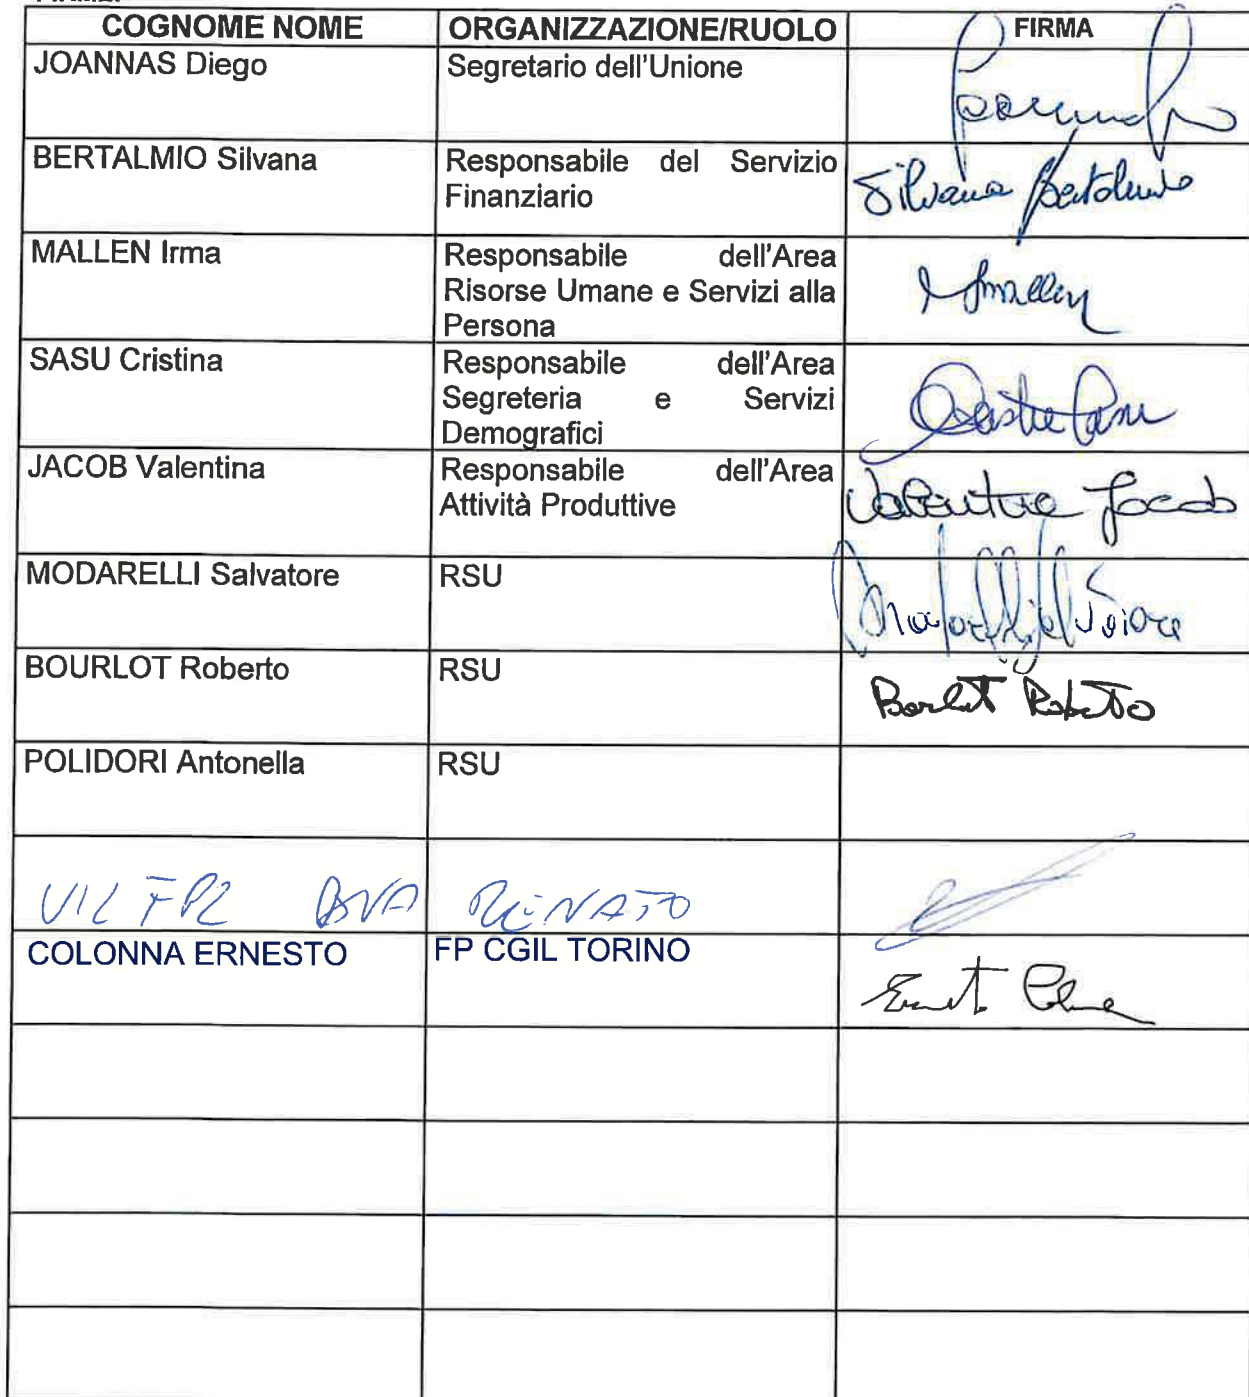 COGNOME NOME ORGANIZZAZIONE/RUOLO FIRMA
JOANNAS Diego Segretario dell'Unione
BERTALMIO Silvana Responsabile del Servizio
Finanziario
Silvana Bertalmio
MALLEN Irma Responsabile dell'Area
Risorse Umane e Servizi alla
Persona
SASU Cristina Responsabile dell'Area
Segreteria e Servizi
Demografici
JACOB Valentina Responsabile dell'Area
Attività Produttive
Valentina Jacob
MODARELLI Salvatore RSU
BOURLOT Roberto RSU
POLIDORI Antonella RSU
UIL FPL RENATO
COLONNA ERNESTO FP CGIL TORINO